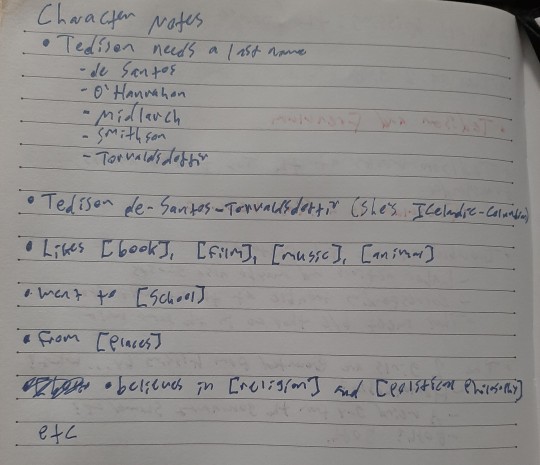 Character Notes
• Tedison needs a last name
- de Santos
- O'Hannahan
- Midlarch
- Smithson
- Torvaldsdottir
• Tedison de-Santos-Torvaldsdottir (She's Icelandic-Colombian)
• Likes [book], [film], [music], [animal]
• went to [School]
• From [places]
• believes in [religion] and [political philosophy]
etc